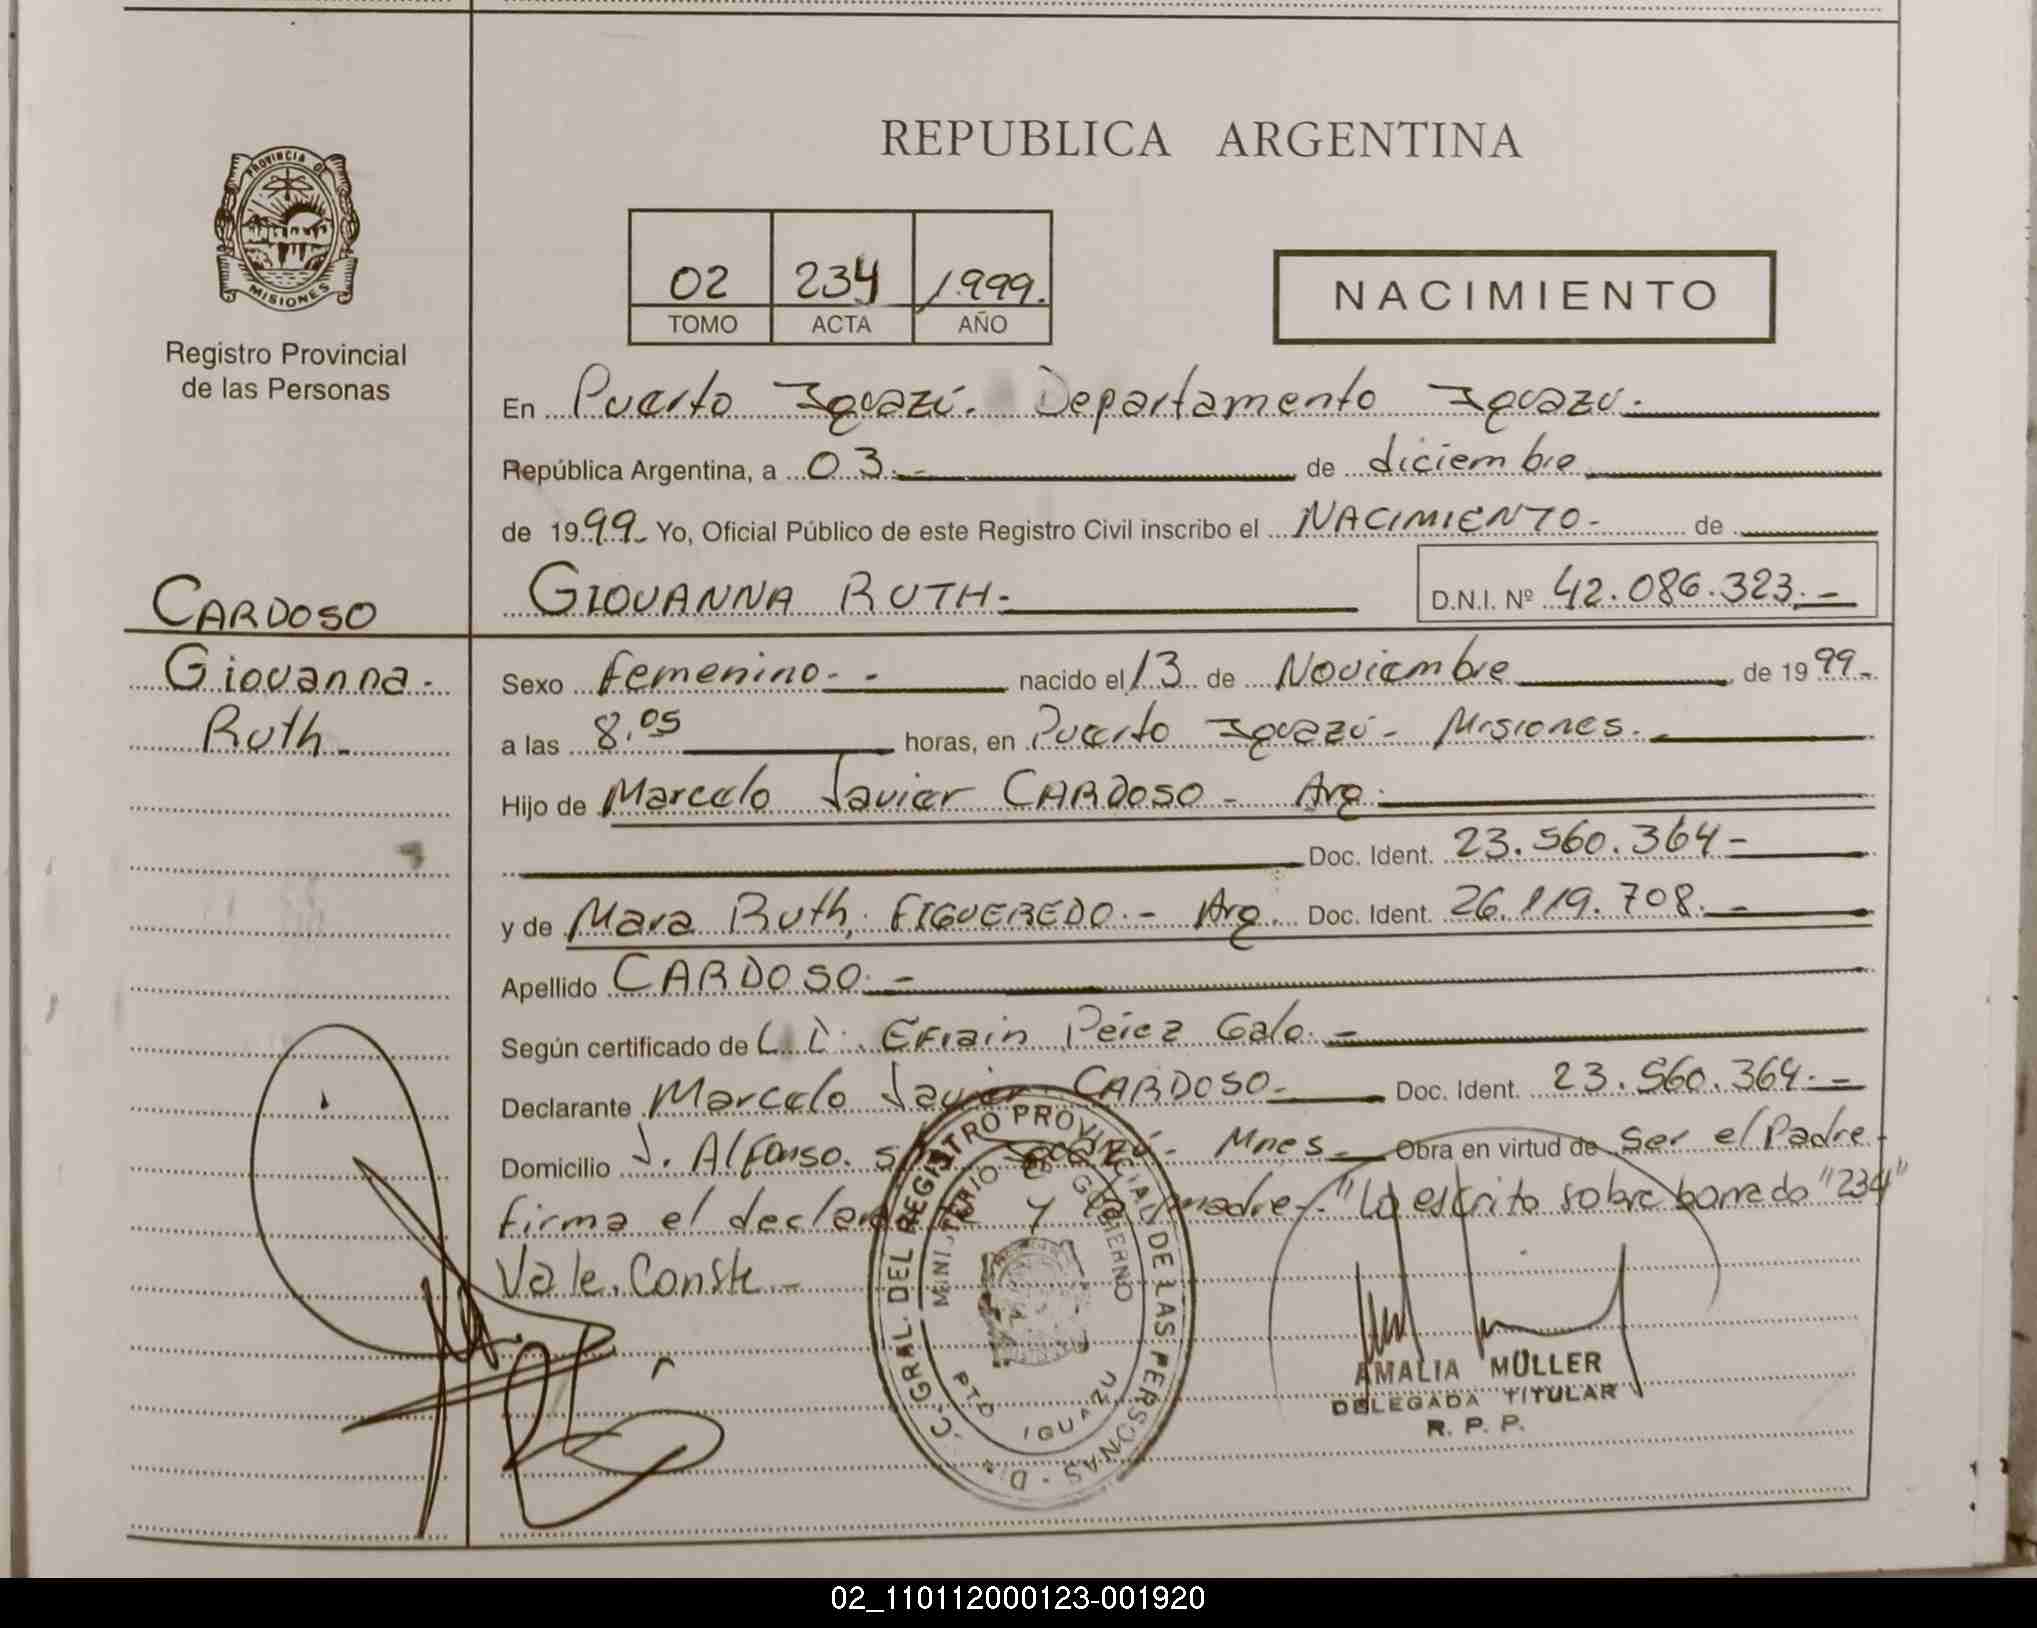 REPUBLICA ARGENTINA
PROVINCIA DE
MISIONES
Registro Provincial
de las Personas
02 234 1999.
TOMO ACTA AÑO
NACIMIENTO
En Puerto Iguazú. Departamento Iguazú.
República Argentina, a 03.- de diciembre
de 1999- Yo, Oficial Público de este Registro Civil inscribo el NACIMIENTO- de
CARDOSO
GIOVANNA RUTH.-
D.N.I. Nº 42.086.323.-
Giovanna.
Ruth.
Sexo Femenino- - nacido el 13 de Noviembre de 1999-
a las 8,05 horas, en Puerto Iguazú- Misiones.
Hijo de Marcelo Javier CARDOSO- Arg.
Doc. Ident. 23.560.364-
y de Mara Ruth, FIGUEREDO.- Arg. Doc. Ident. 26.119.708.-
Apellido CARDOSO.-
Según certificado de Efrain Pérez Galo.-
Declarante Marcelo Javier CARDOSO- Doc. Ident. 23.560.364.-
Domicilio J. Alfonso. Iguazú- Mnes- Obra en virtud de Ser el Padre-
firma el y la madre-. "Lo escrito sobre borrado "234"
Vale. Conste-
C. GRAL. DEL REGISTRO PROVINCIAL DE LAS PERSONAS
MINISTERIO DE GOBIERNO
PTO IGUAZU
AMALIA MÜLLER
DELEGADA TITULAR
R. P. P.
02_110112000123-001920